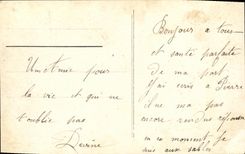 Un Amie pour
la vie et qui ne
t'oublie pas
Devine
Bonjour a tous
et santé parfaite
de ma part
J'ai ecris a Pierre
ne ma pas
encore rendue reponse
en ce moment je
suis aux sables